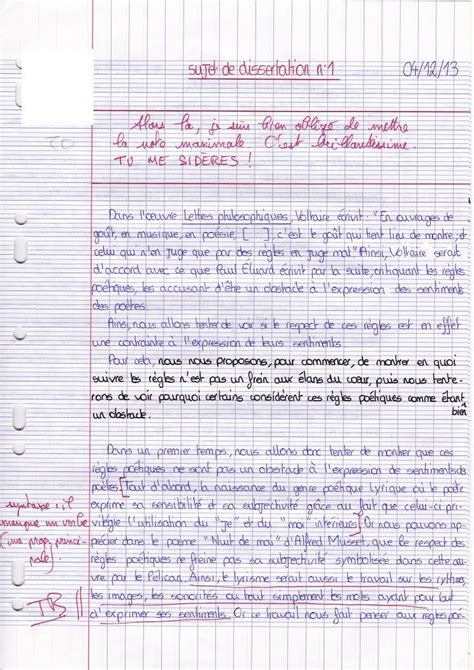 sujet de dissertation n°1
04/12/13
Alors là, je suis bien obligé de mettre
la note maximale. C'est brillantissime.
TU ME SIDÈRES !
Dans l'œuvre Lettres philosophiques, Voltaire écrivit : "En ouvrages de
goût, en musique, en poésie, [ ] c'est le goût qui tient lieu de montre; et
celui qui n'en juge que par des règles en juge mal". Ainsi, Voltaire serait
d'accord avec ce que Paul Éluard écrivit par la suite, critiquant les règles
poétiques, les accusant d'être un obstacle à l'expression des sentiments
des poètes.
Ainsi, nous allons tenter de voir si le respect de ces règles est en effet
une contrainte à l'expression de leurs sentiments.
Pour cela, nous nous proposons, pour commencer, de montrer en quoi
suivre les règles n'est pas un frein aux élans du cœur, puis nous tente-
rons de voir pourquoi certains considèrent ces règles poétiques comme étant
un obstacle.
bien
Dans un premier temps, nous allons donc tenter de montrer que ces
règles poétiques ne sont pas un obstacle à l'expression de sentiments des
poètes. [Tout d'abord, la naissance du genre poétique lyrique où le poète
exprime sa sensibilité et sa subjectivité grâce au fait que celui-ci pri-
vilégie l'utilisation du "je" et du "moi intérieur".] Or nous pouvons ap-
précier dans le poème "Nuit de mai" d'Alfred Musset, que le respect des
règles poétiques ne freine pas sa subjectivité symbolisée dans cette œu-
vre par le Pélican. Ainsi, le lyrisme serait aussi le travail sur les rythmes,
les images, les sonorités ou tout simplement les mots ayant pour but
d'exprimer ses sentiments. Or ce travail nous fait penser aux règles poé-
syntaxe : il
manque un verbe
(une prop. princi-
pale)
TB